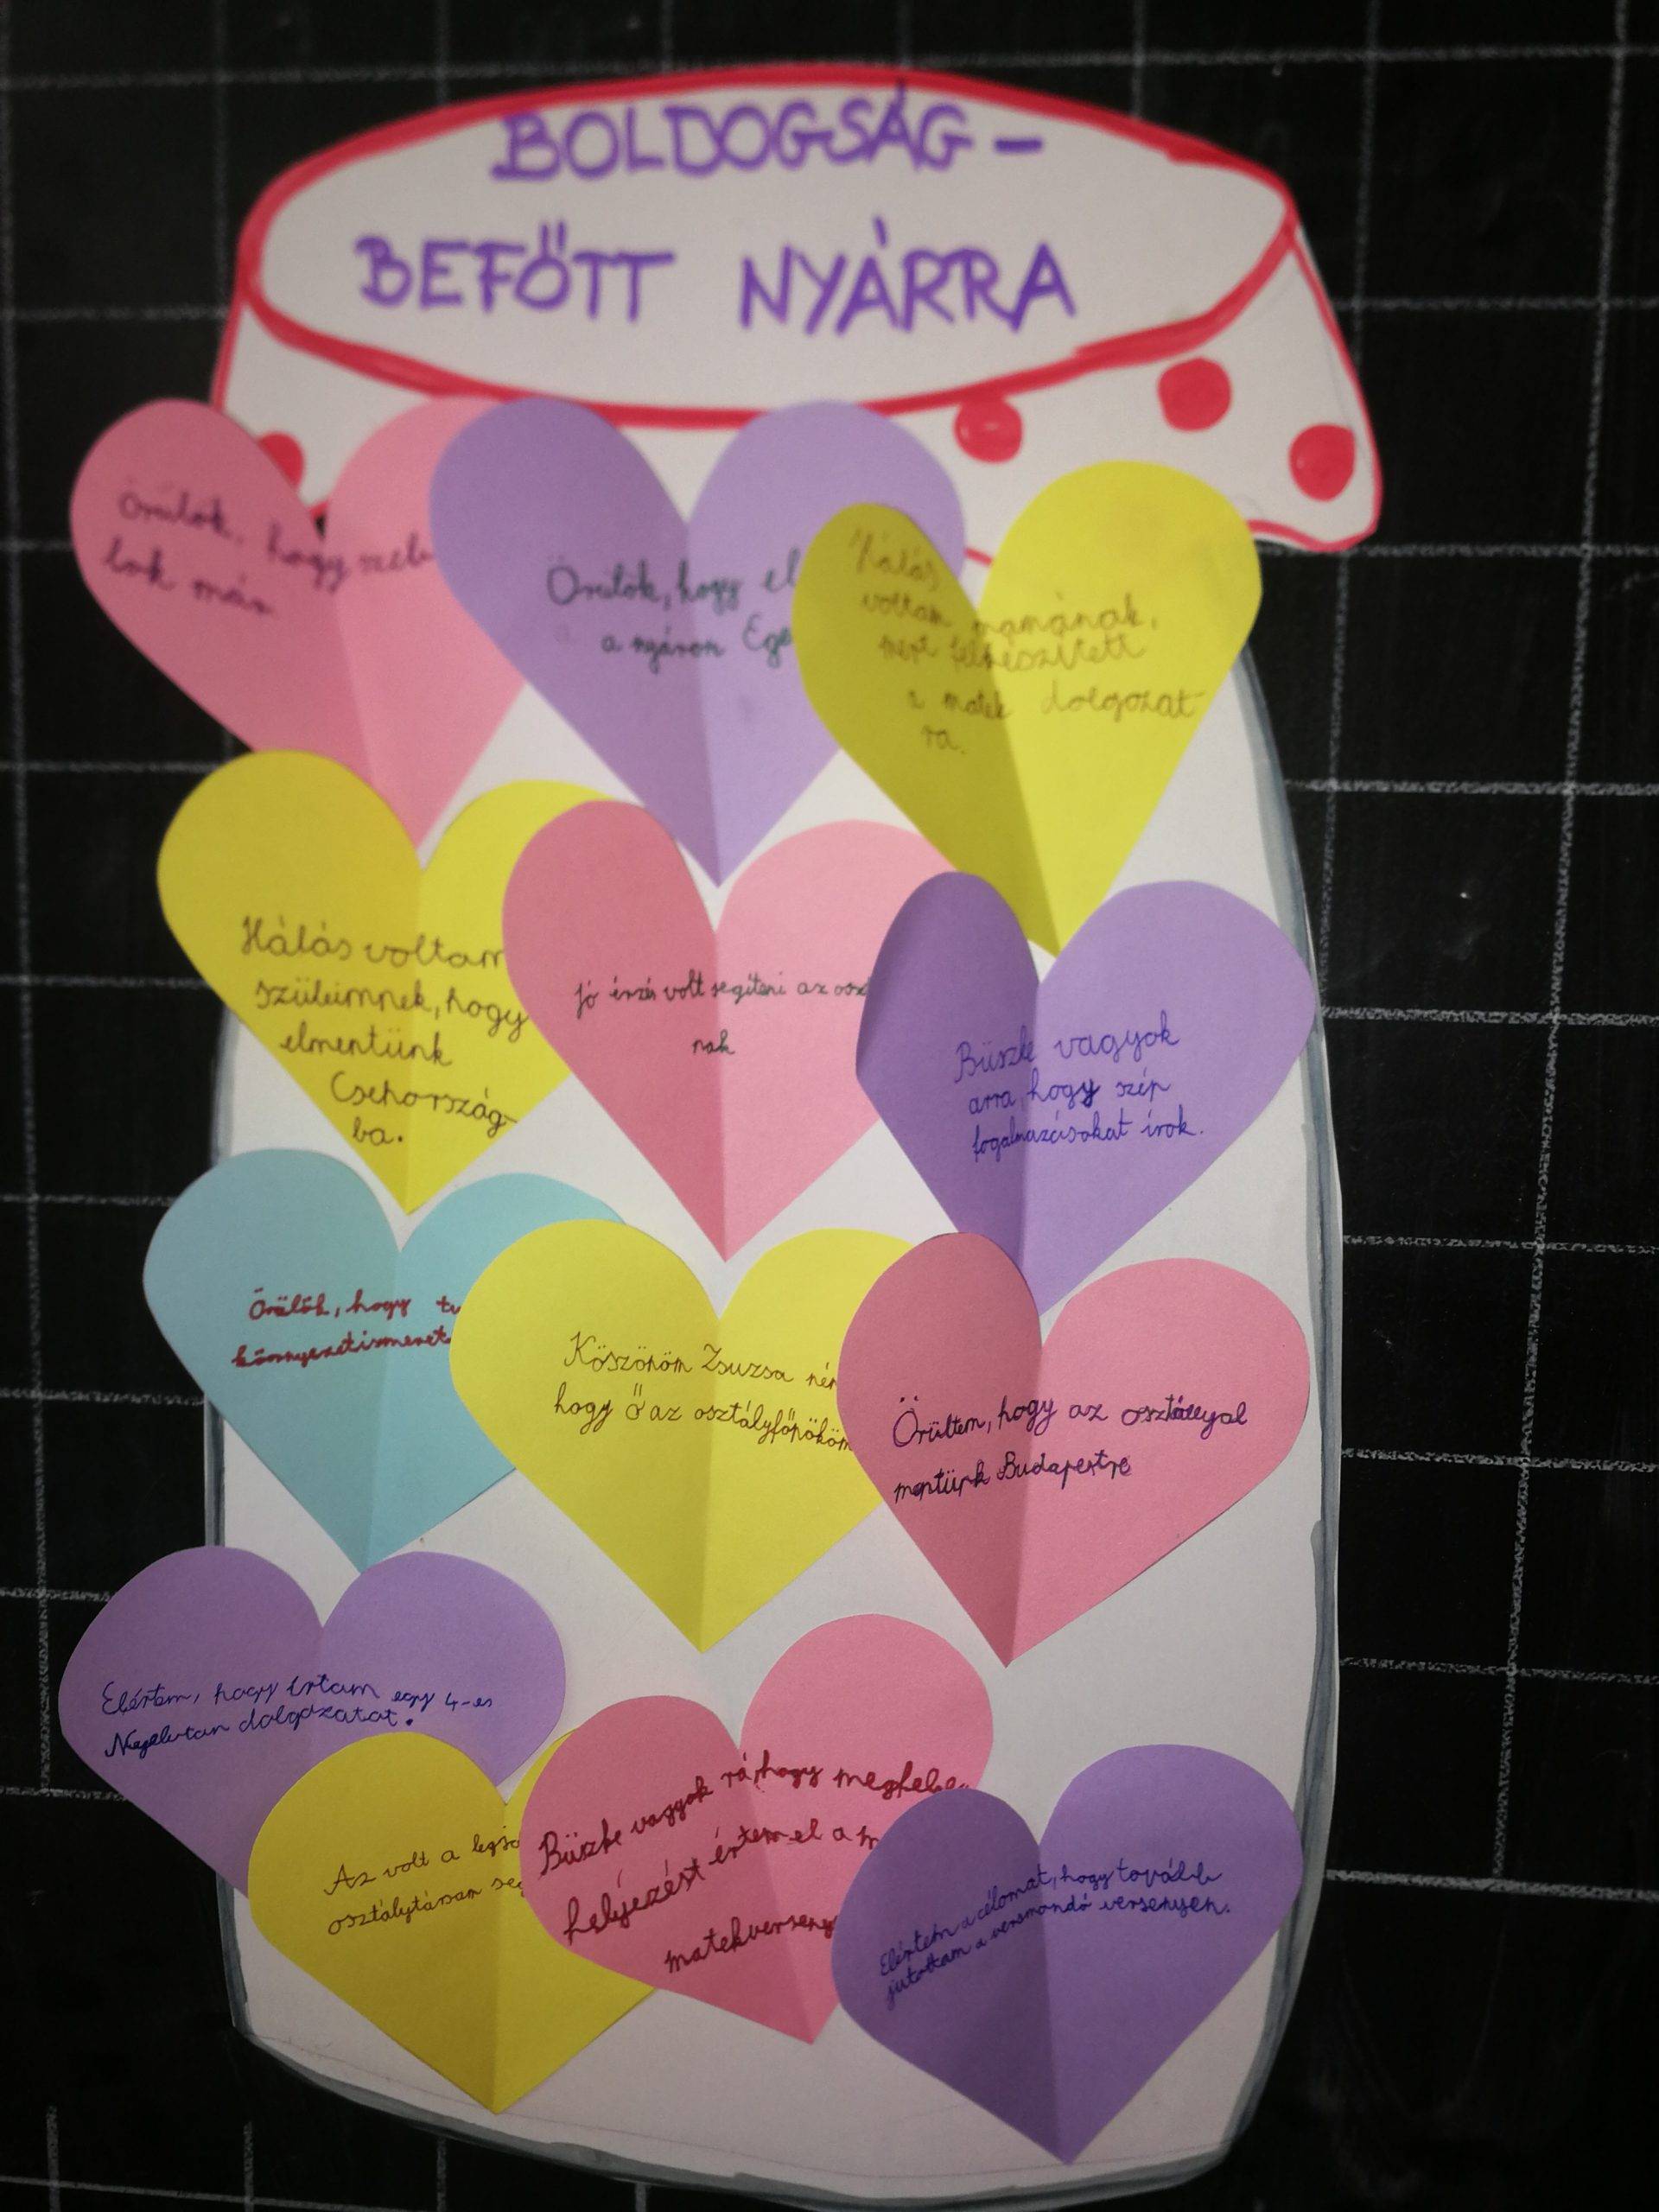 BOLDOGSÁG-
BEFŐTT NYÁRRA
Örülök, hogy
tok más
Örülök, hogy el
a nyáron Ege
Hálás
voltam mamának,
mert felkészített
a matek dolgozat-
ra.
Hálás voltam
szüleimnek, hogy
elmentünk
Csehország-
ba.
jó érzés volt segíteni az osz
nak
Büszke vagyok
arra, hogy szép
fogalmazásokat írok.
Örülök, hogy tu
környezetismeret
Köszönöm Zsuzsa nén
hogy Ő az osztályfőnököm
Örültem, hogy az osztállyal
mentünk Budapestre
Elértem, hogy írtam egy 4-es
Nyelvtan dolgozatot.
Az volt a legjo
osztálytársam seg
Büszke vagyok rá, hogy megfele
helyezést értem el a m
matekverseny
Elértem a célomat, hogy tovább
jutottam a versmondó versenyen.